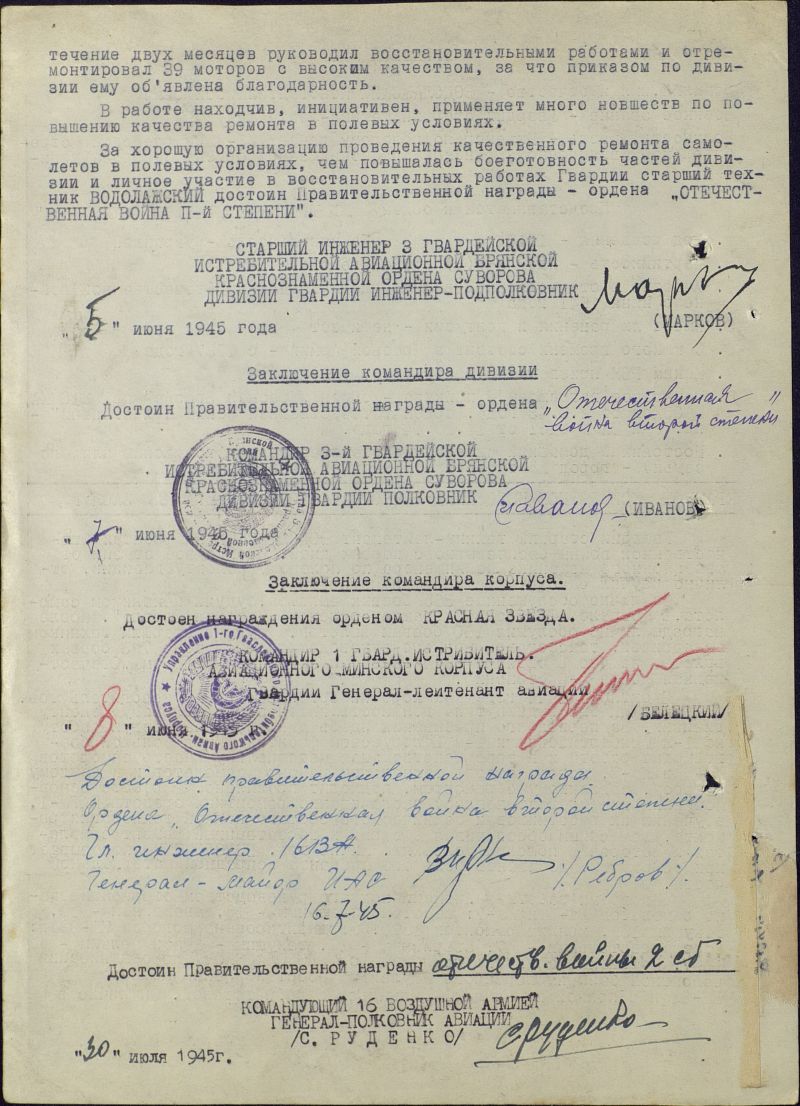 течение двух месяцев руководил восстановительными работами и отре-
монтировал 39 моторов с высоким качеством, за что приказом по диви-
зии ему об'явлена благодарность.
В работе находчив, инициативен, применяет много новшеств по по-
вышению качества ремонта в полевых условиях.
За хорошую организацию проведения качественного ремонта само-
летов в полевых условиях, чем повышалась боеготовность частей диви-
зии и личное участие в восстановительных работах Гвардии старший тех-
ник ВОДОЛАЖСКИЙ достоин Правительственной награды - ордена „ОТЕЧЕСТ-
ВЕННАЯ ВОЙНА П-й СТЕПЕНИ".
СТАРШИЙ ИНЖЕНЕР 3 ГВАРДЕЙСКОЙ
ИСТРЕБИТЕЛЬНОЙ АВИАЦИОННОЙ БРЯНСКОЙ
КРАСНОЗНАМЕННОЙ ОРДЕНА СУВОРОВА
ДИВИЗИИ ГВАРДИИ ИНЖЕНЕР-ПОДПОЛКОВНИК
(МАРКОВ)
"5" июня 1945 года
Заключение командира дивизии
Достоин Правительственной награды - ордена „Отечественная
война второй степени"
КОМАНДИР 3-й ГВАРДЕЙСКОЙ
ИСТРЕБИТЕЛЬНОЙ АВИАЦИОННОЙ БРЯНСКОЙ
КРАСНОЗНАМЕННОЙ ОРДЕНА СУВОРОВА
ДИВИЗИИ ГВАРДИИ ПОЛКОВНИК
(ИВАНОВ)
"7" июня 1945 года
Заключение командира корпуса.
Достоен награждения орденом КРАСНАЯ ЗВЕЗДА.
КОМАНДИР 1 ГВАРД.ИСТРИБИТЕЛЬ.
АВИАЦИОННОГО МИНСКОГО КОРПУСА
Гвардии Генерал-леитенант авиации
/БЕЛЕЦКИЙ/
"8" июня 1945 г.
Достоин правительственной награды
Ордена „Отечественная война второй степени"
Гл. инженер 16ВА
Генерал-Майор ИАС /Ребров/.
16.7.45.
Достоин Правительственной награды отечеств. войны 2 ст
КОМАНДУЮЩИЙ 16 ВОЗДУШНОЙ АРМИЕЙ
ГЕНЕРАЛ-ПОЛКОВНИК АВИАЦИИ
/С. РУДЕНКО/ СРуденко
"30" июля 1945г.